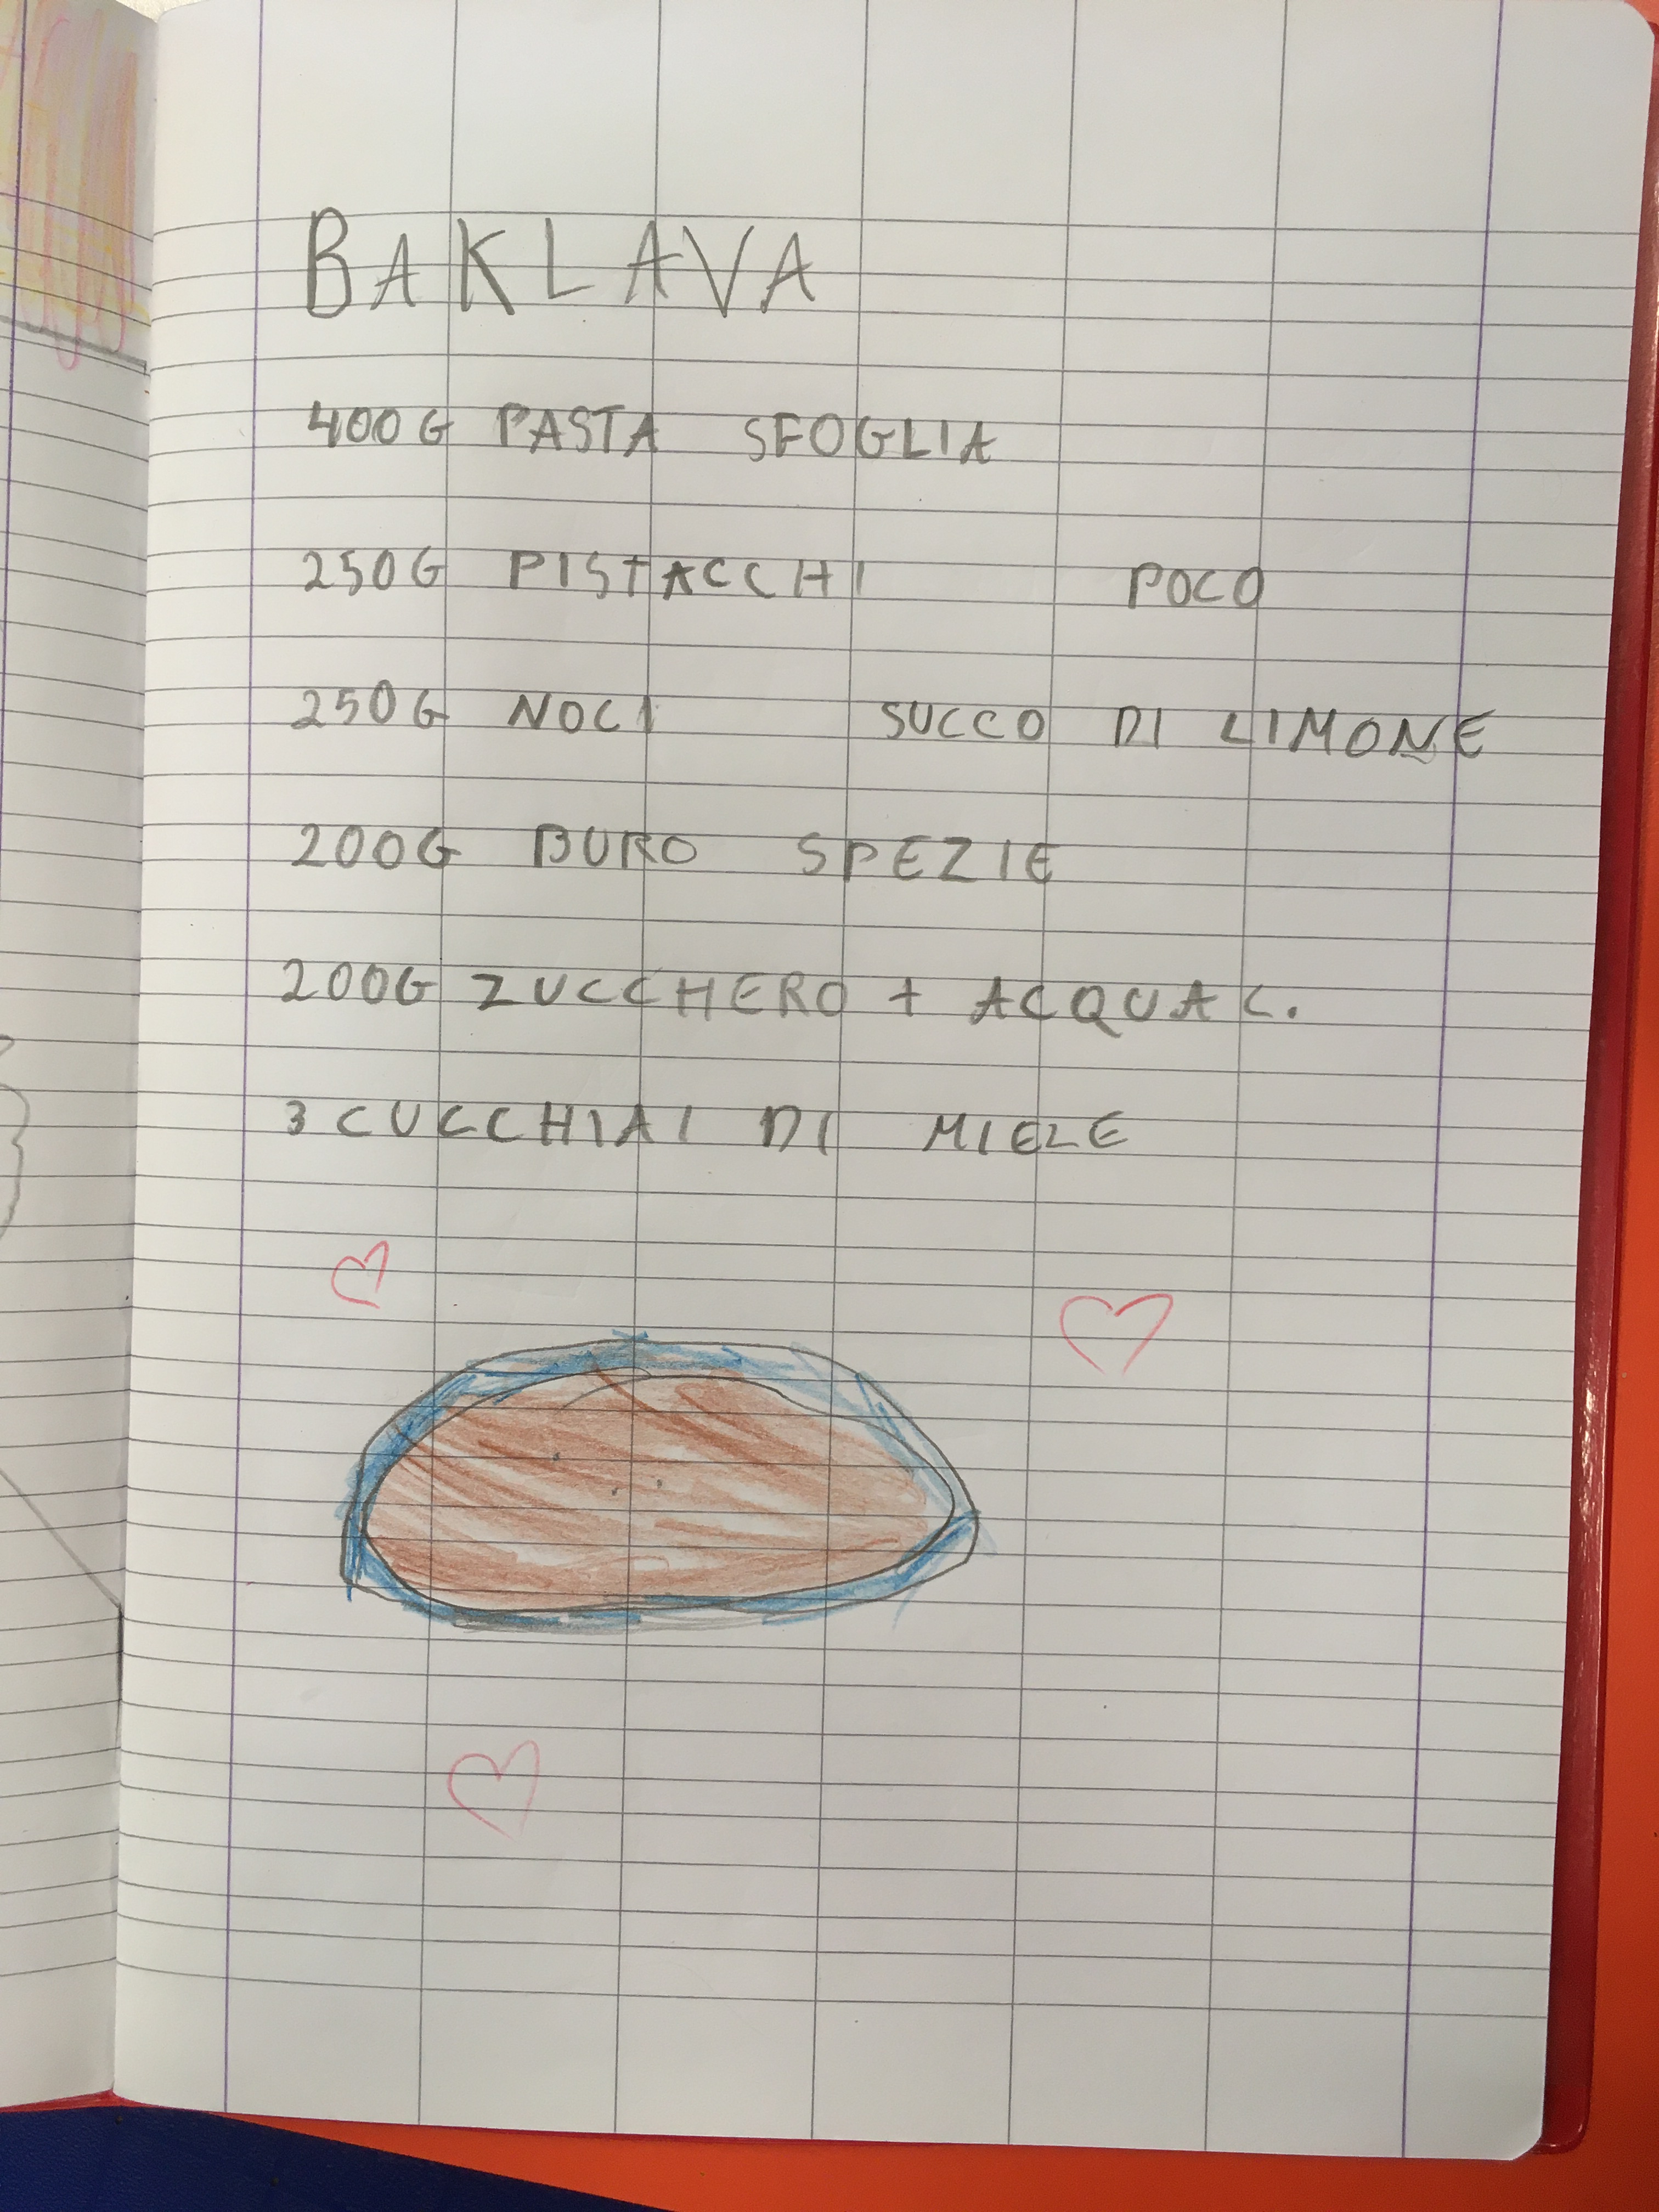 BAKLAVA
400G PASTA SFOGLIA
250G PISTACCHI POCO
250G NOCI SUCCO DI LIMONE
200G BURO SPEZIE
200G ZUCCHERO + ACQUA C.
3 CUCCHIAI DI MIELE